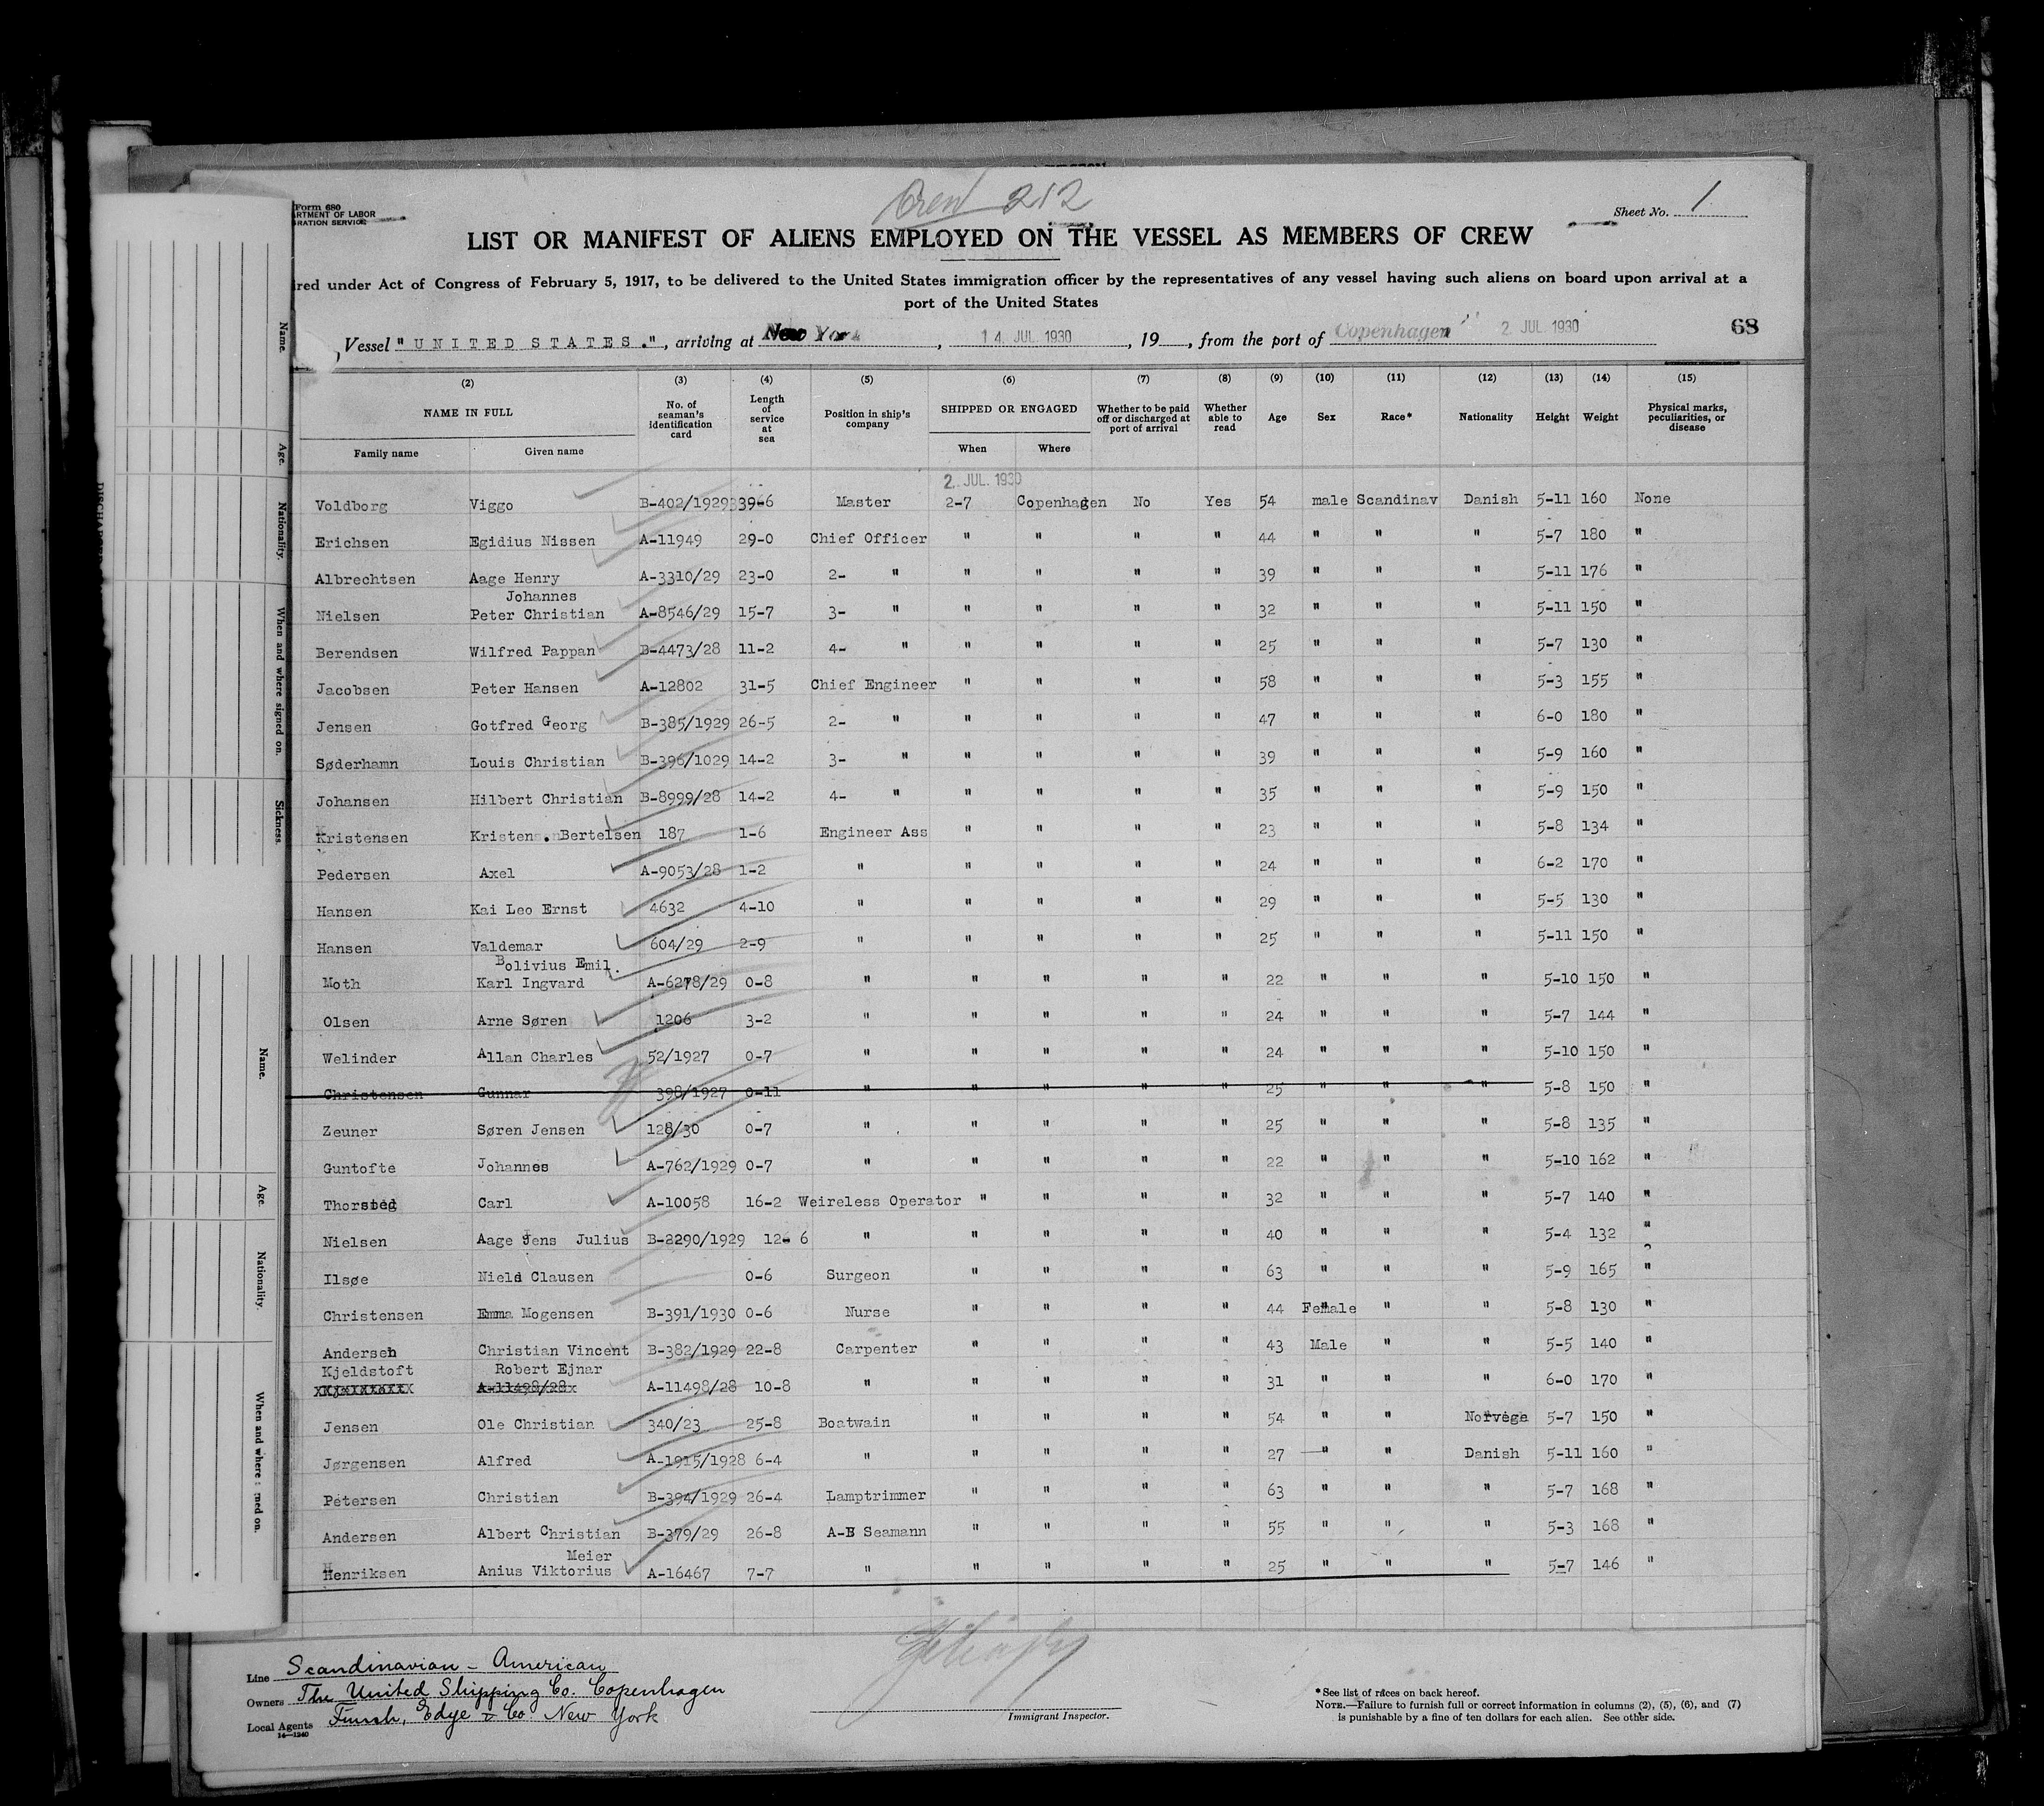 Crew 212
Form 680
ARTMENT OF LABOR
GRATION SERVICE
Sheet No. 1
LIST OR MANIFEST OF ALIENS EMPLOYED ON THE VESSEL AS MEMBERS OF CREW
ired under Act of Congress of February 5, 1917, to be delivered to the United States immigration officer by the representatives of any vessel having such aliens on board upon arrival at a
port of the United States
Vessel "UNITED STATES.", arriving at New York, 14. JUL. 1930, 19, from the port of Copenhagen 2. JUL. 1930 68
(2) (3) (4) (5) (6) (7) (8) (9) (10) (11) (12) (13) (14) (15)
NAME IN FULL No. of seaman's identification card Length of service at sea Position in ship's company SHIPPED OR ENGAGED Whether to be paid off or discharged at port of arrival Whether able to read Age Sex Race* Nationality Height Weight Physical marks, peculiarities, or disease
Family name Given name When Where
2. JUL. 1930
Voldborg Viggo B-402/1929 39-6 Master 2-7 Copenhagen No Yes 54 male Scandinav Danish 5-11 160 None
Erichsen Egidius Nissen A-11949 29-0 Chief Officer " " " " 44 " " " 5-7 180 "
Albrechtsen Aage Henry A-3310/29 23-0 2- " " " " " 39 " " " 5-11 176 "
Johannes
Nielsen Peter Christian A-8546/29 15-7 3- " " " " " 32 " " " 5-11 150 "
Berendsen Wilfred Pappan B-4473/28 11-2 4- " " " " " 25 " " " 5-7 130 "
Jacobsen Peter Hansen A-12802 31-5 Chief Engineer " " " " 58 " " " 5-3 155 "
Jensen Gotfred Georg B-385/1929 26-5 2- " " " " " 47 " " " 6-0 180 "
Søderhamn Louis Christian B-396/1029 14-2 3- " " " " " 39 " " " 5-9 160 "
Johansen Hilbert Christian B-8999/28 14-2 4- " " " " " 35 " " " 5-9 150 "
Kristensen Kristen . Bertelsen 187 1-6 Engineer Ass " " " " 23 " " " 5-8 134 "
Pedersen Axel A-9053/28 1-2 " " " " " 24 " " " 6-2 170 "
Hansen Kai Leo Ernst 4632 4-10 " " " " " 29 " " " 5-5 130 "
Hansen Valdemar 604/29 2-9 " " " " " 25 " " " 5-11 150 "
Bolivius Emil.
Moth Karl Ingvard A-6278/29 0-8 " " " " " 22 " " " 5-10 150 "
Olsen Arne Søren 1206 3-2 " " " " " 24 " " " 5-7 144 "
Welinder Allan Charles 52/1927 0-7 " " " " " 24 " " " 5-10 150 "
Christensen Gunnar 398/1927 0-11 " " " " " 25 " " " 5-8 150 "
Zeuner Søren Jensen 128/30 0-7 " " " " " 25 " " " 5-8 135 "
Guntofte Johannes A-762/1929 0-7 " " " " " 22 " " " 5-10 162 "
Thorsted Carl A-10058 16-2 Weireless Operator " " " " 32 " " " 5-7 140 "
Nielsen Aage Jens Julius B-2290/1929 12-6 " " " " " 40 " " " 5-4 132 "
Ilsøe Niels Clausen 0-6 Surgeon " " " " 63 " " " 5-9 165 "
Christensen Emma Mogensen B-391/1930 0-6 Nurse " " " " 44 Female " " 5-8 130 "
Andersen Christian Vincent B-382/1929 22-8 Carpenter " " " " 43 Male " " 5-5 140 "
Kjeldstoft Robert Ejnar
A-11498/28x A-11498/28 10-8 " " " " " 31 " " " 6-0 170 "
Jensen Ole Christian 340/23 25-8 Boatwain " " " " 54 " " Norvege 5-7 150 "
Jørgensen Alfred A-1915/1928 6-4 " " " " " 27 " " Danish 5-11 160 "
Petersen Christian B-394/1929 26-4 Lamptrimmer " " " " 63 " " " 5-7 168 "
Andersen Albert Christian B-379/29 26-8 A-B Seamann " " " " 55 " " " 5-3 168 "
Meier
Henriksen Anius Viktorius A-16467 7-7 " " " " " 25 " " " 5-7 146 "
Line Scandinavian - American
Owners The United Shipping Co. Copenhagen
Local Agents Funch, Edye & Co New York
14—1240
Immigrant Inspector.
*See list of races on back hereof.
NOTE.—Failure to furnish full or correct information in columns (2), (5), (6), and (7)
is punishable by a fine of ten dollars for each alien. See other side.
Name.
Age.
Nationality.
When and where signed on.
Sickness.
Name.
Age.
Nationality.
When and where